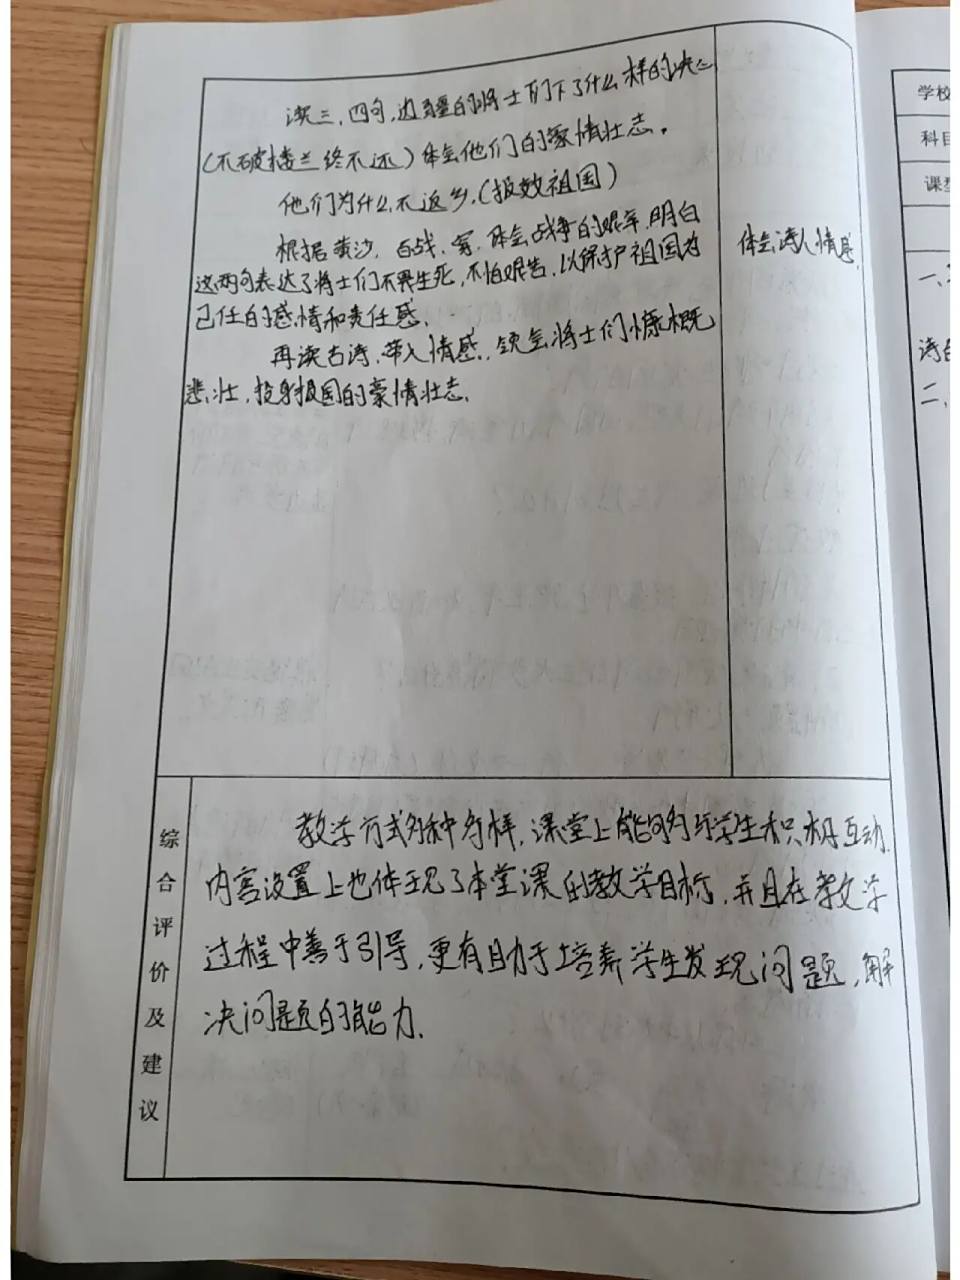 读三、四句,边疆的将士们下了什么样的决心
(不破楼兰终不还)体会他们的豪情壮志。
他们为什么不返乡.(报效祖国)
根据黄沙,百战,穿,体会战争的艰辛,明白
这两句表达了将士们不畏生死,不怕艰苦,以保护祖国为
己任的感情和责任感.
再读古诗,带入情感,领会将士们慷概
悲壮,投身报国的豪情壮志.
体会诗人情感.
综合评价及建议
教学方式多种多样,课堂上能够与学生积极互动.
内容设置上也体现了本堂课的教学目标,并且在教学
过程中善于引导,更有助于培养学生发现问题,解
决问题的能力.
学校
科目
课型
一、
诗
二、